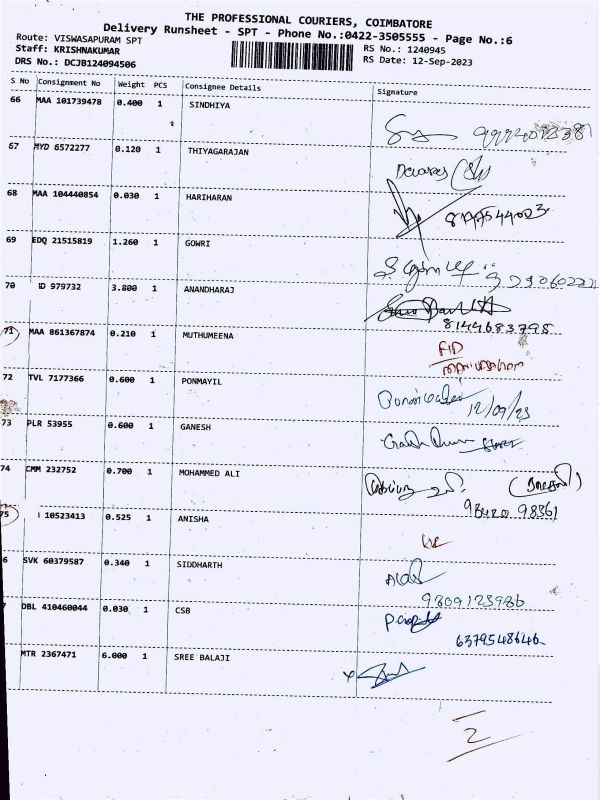 THE PROFESSIONAL COURIERS, COIMBATORE
Delivery Runsheet - SPT - Phone No.:0422-3505555 - Page No.:6
Route: VISWASAPURAM SPT
RS No.: 1240945
Staff: KRISHNAKUMAR
RS Date: 12-Sep-2023
DRS No.: DCJB124094506
S No Consignment No Weight PCS Consignee Details Signature
66 MAA 101739478 0.400 1 SINDHIYA
67 MYD 6572277 0.120 1 THIYAGARAJAN
68 MAA 104440854 0.030 1 HARIHARAN
69 EDQ 21515819 1.260 1 GOWRI
70 D 979732 3.800 1 ANANDHARAJ
8144683795
71 MAA 861367874 0.210 1 MUTHUMEENA
72 TVL 7177366 0.600 1 PONMAYIL
12/09/23
73 PLR 53955 0.600 1 GANESH
74 CMM 232752 0.700 1 MOHAMMED ALI
75 10523413 0.525 1 ANISHA
6 SVK 60379587 0.340 1 SIDDHARTH
9809123986
DBL 410460044 0.030 1 CSB
6379548646
MTR 2367471 6.000 1 SREE BALAJI
2